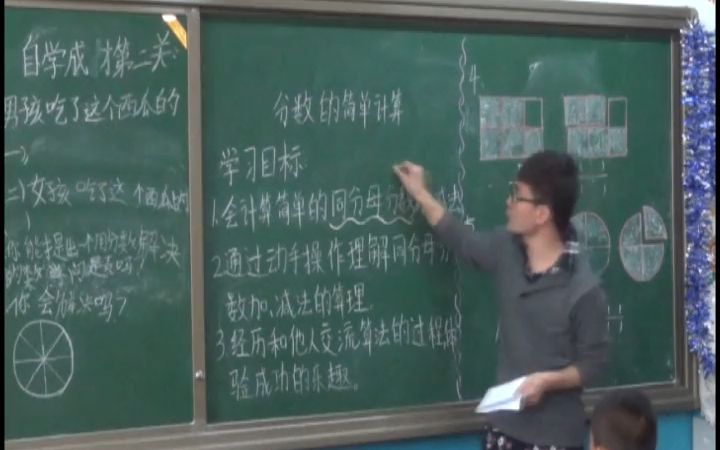 自学成 才第二关:
男孩吃了这个西瓜的
一)
二)女孩吃了这个西瓜的
)
你能提出一个用分数解决
的数学问题吗?
你会解决吗?
分数的简单计算
学习目标
1.会计算简单的同分母分
2.通过动手操作理解同分母分
数加、减法的算理.
3.经历和他人交流算法的过程体
验成功的乐趣。
4.